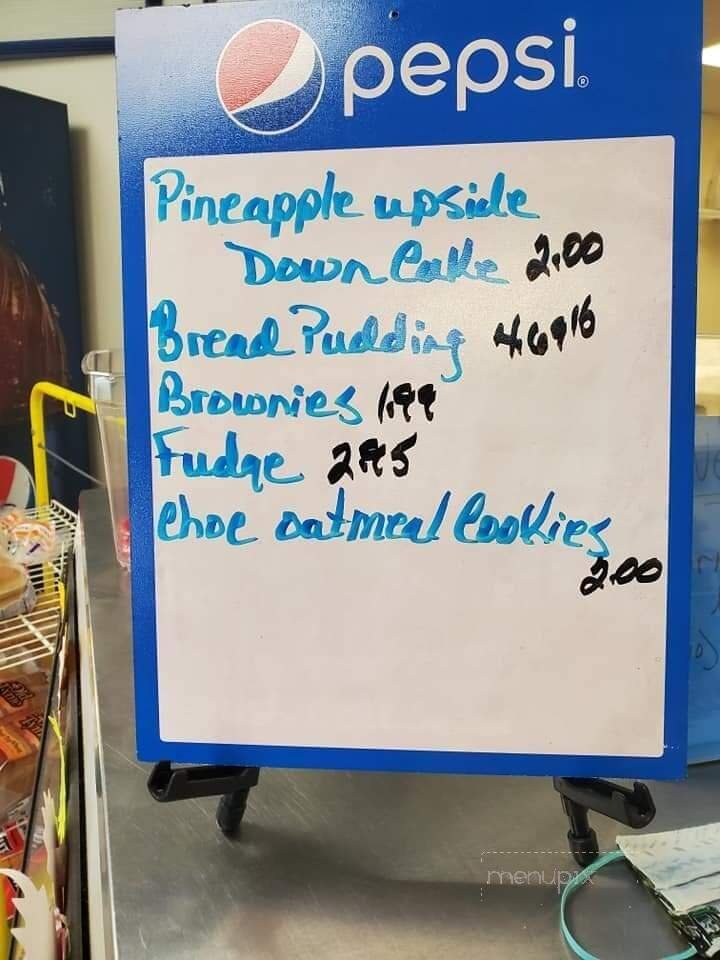 pepsi
Pineapple upside
Down Cake 2.00
Bread Pudding
Brownies 1.99
Fudge
Choc oatmeal Cookies
2.00
menupix